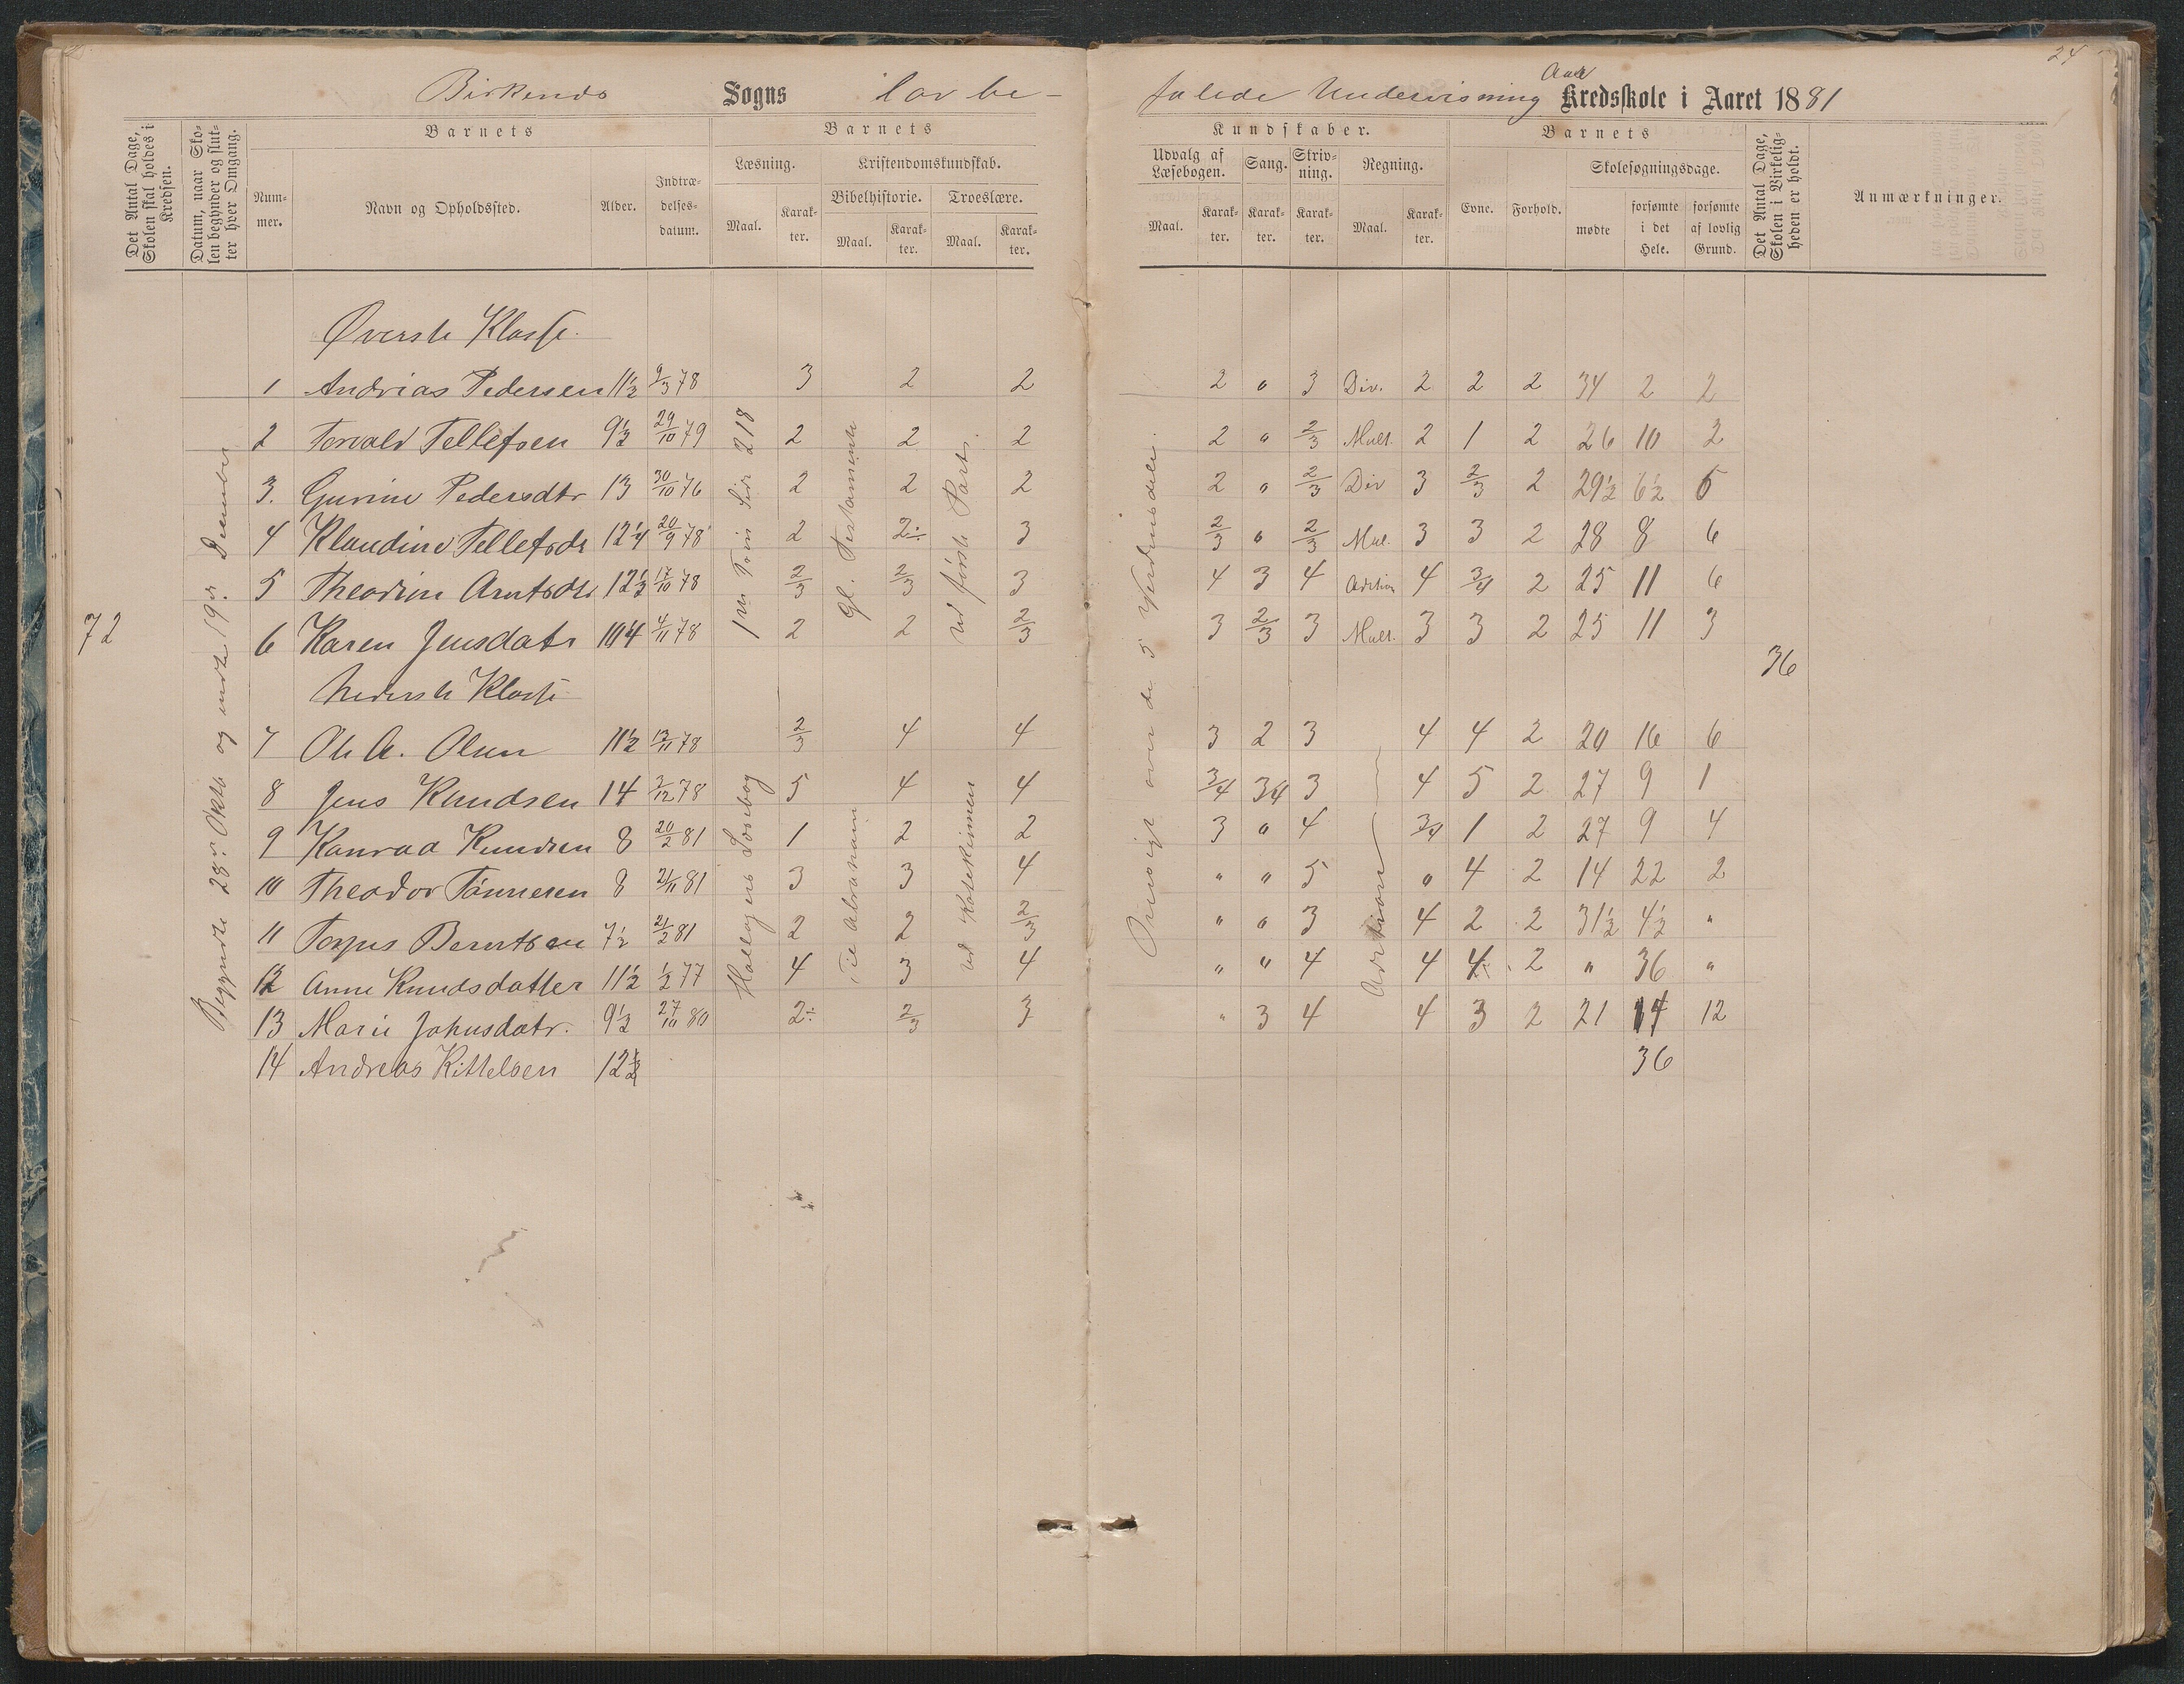 24
Birkends Sogns har be-
falede Undervisning Aas Kredsskole i Aaret 1881
Det Antal Dage, Skolen skal holdes i Kredsen.
Datum, naar Skolen begynder og slutter hver Omgang.
Barnets
Nummer.
Navn og Opholdssted.
Alder.
Indtrædelsesdatum.
Barnets
Læsning.
Maal. Karakter.
Kristendomskundskab.
Bibelhistorie. Troeslære.
Maal. Karakter. Maal. Karakter.
Kundskaber.
Udvalg af Læsebogen. Sang. Skrivning. Regning.
Maal. Karakter. Karakter. Karakter. Maal. Karakter.
Barnets
Evne. Forhold.
Skolesøgningsdage.
mødte forsømte i det Hele. forsømte af lovlig Grund.
Det Antal Dage, Skolen i Virkeligheden er holdt.
Anmærkninger.
72
Begyndte 28de Oktb og endte 19de December
Øverste Klasse.
1 Andrias Pedersen 11½ 9/3 78 3 2 2 2 " 3 Div. 2 2 2 34 2 2
2 Torvald Tellefsen 9½ 29/10 79 2 2 2 2 " 2/3 Mult. 2 1 2 26 10 2
3. Gurine Pedersdtr 13 30/10 76 2 2 2 2 " 2/3 Div 3 2/3 2 29½ 6½ 5
4 Klaudine Tellefsdr 12¼ 20/9 78 2 2÷ 3 2/3 " 2/3 Mul. 3 3 2 28 8 6
5 Theodrine Arntsdtr 12½ 17/10 78 2/3 2/3 3 4 3 4 Adition 4 3/4 2 25 11 6
6 Karen Jensdatr 10¼ 4/11 78 2 2 2/3 3 2/3 3 Mult. 3 3 2 25 11 3
36
1ste Trin Side 218
Gl. Testamente
ud første Part.
Oversigt over de 5 Verdensdele.
Nederste Klasse
7 Ole A. Olsen 11½ 13/11 78 2/3 4 4 3 2 3 4 4 2 20 16 6
8 Jens Knudsen 14 3/12 78 5 4 4 3/4 3/4 3 4 5 2 27 9 1
9 Konrad Knudsen 8 20/2 81 1 2 2 3 " 4 3/4 1 2 27 9 4
10 Theodor Tønnesen 8 2/11 81 3 3 4 " " 5 " 4 2 14 22 2
11 Torjus Berntsen 7½ 21/2 81 2 2 2/3 " " 3 4 2 2 31½ 4½ "
12 Anne Knudsdatter 11½ 1/2 77 4 3 4 " " 4 4 4 2 " 36 "
13 Marie Johnsdatr. 9½ 27/10 80 2÷ 2/3 3 " 3 4 4 3 2 21 14 12
14 Andreas Kittelsen 12½ 36
Hallagers Læsebog
Til Abraham
ud Katekismen
Adition